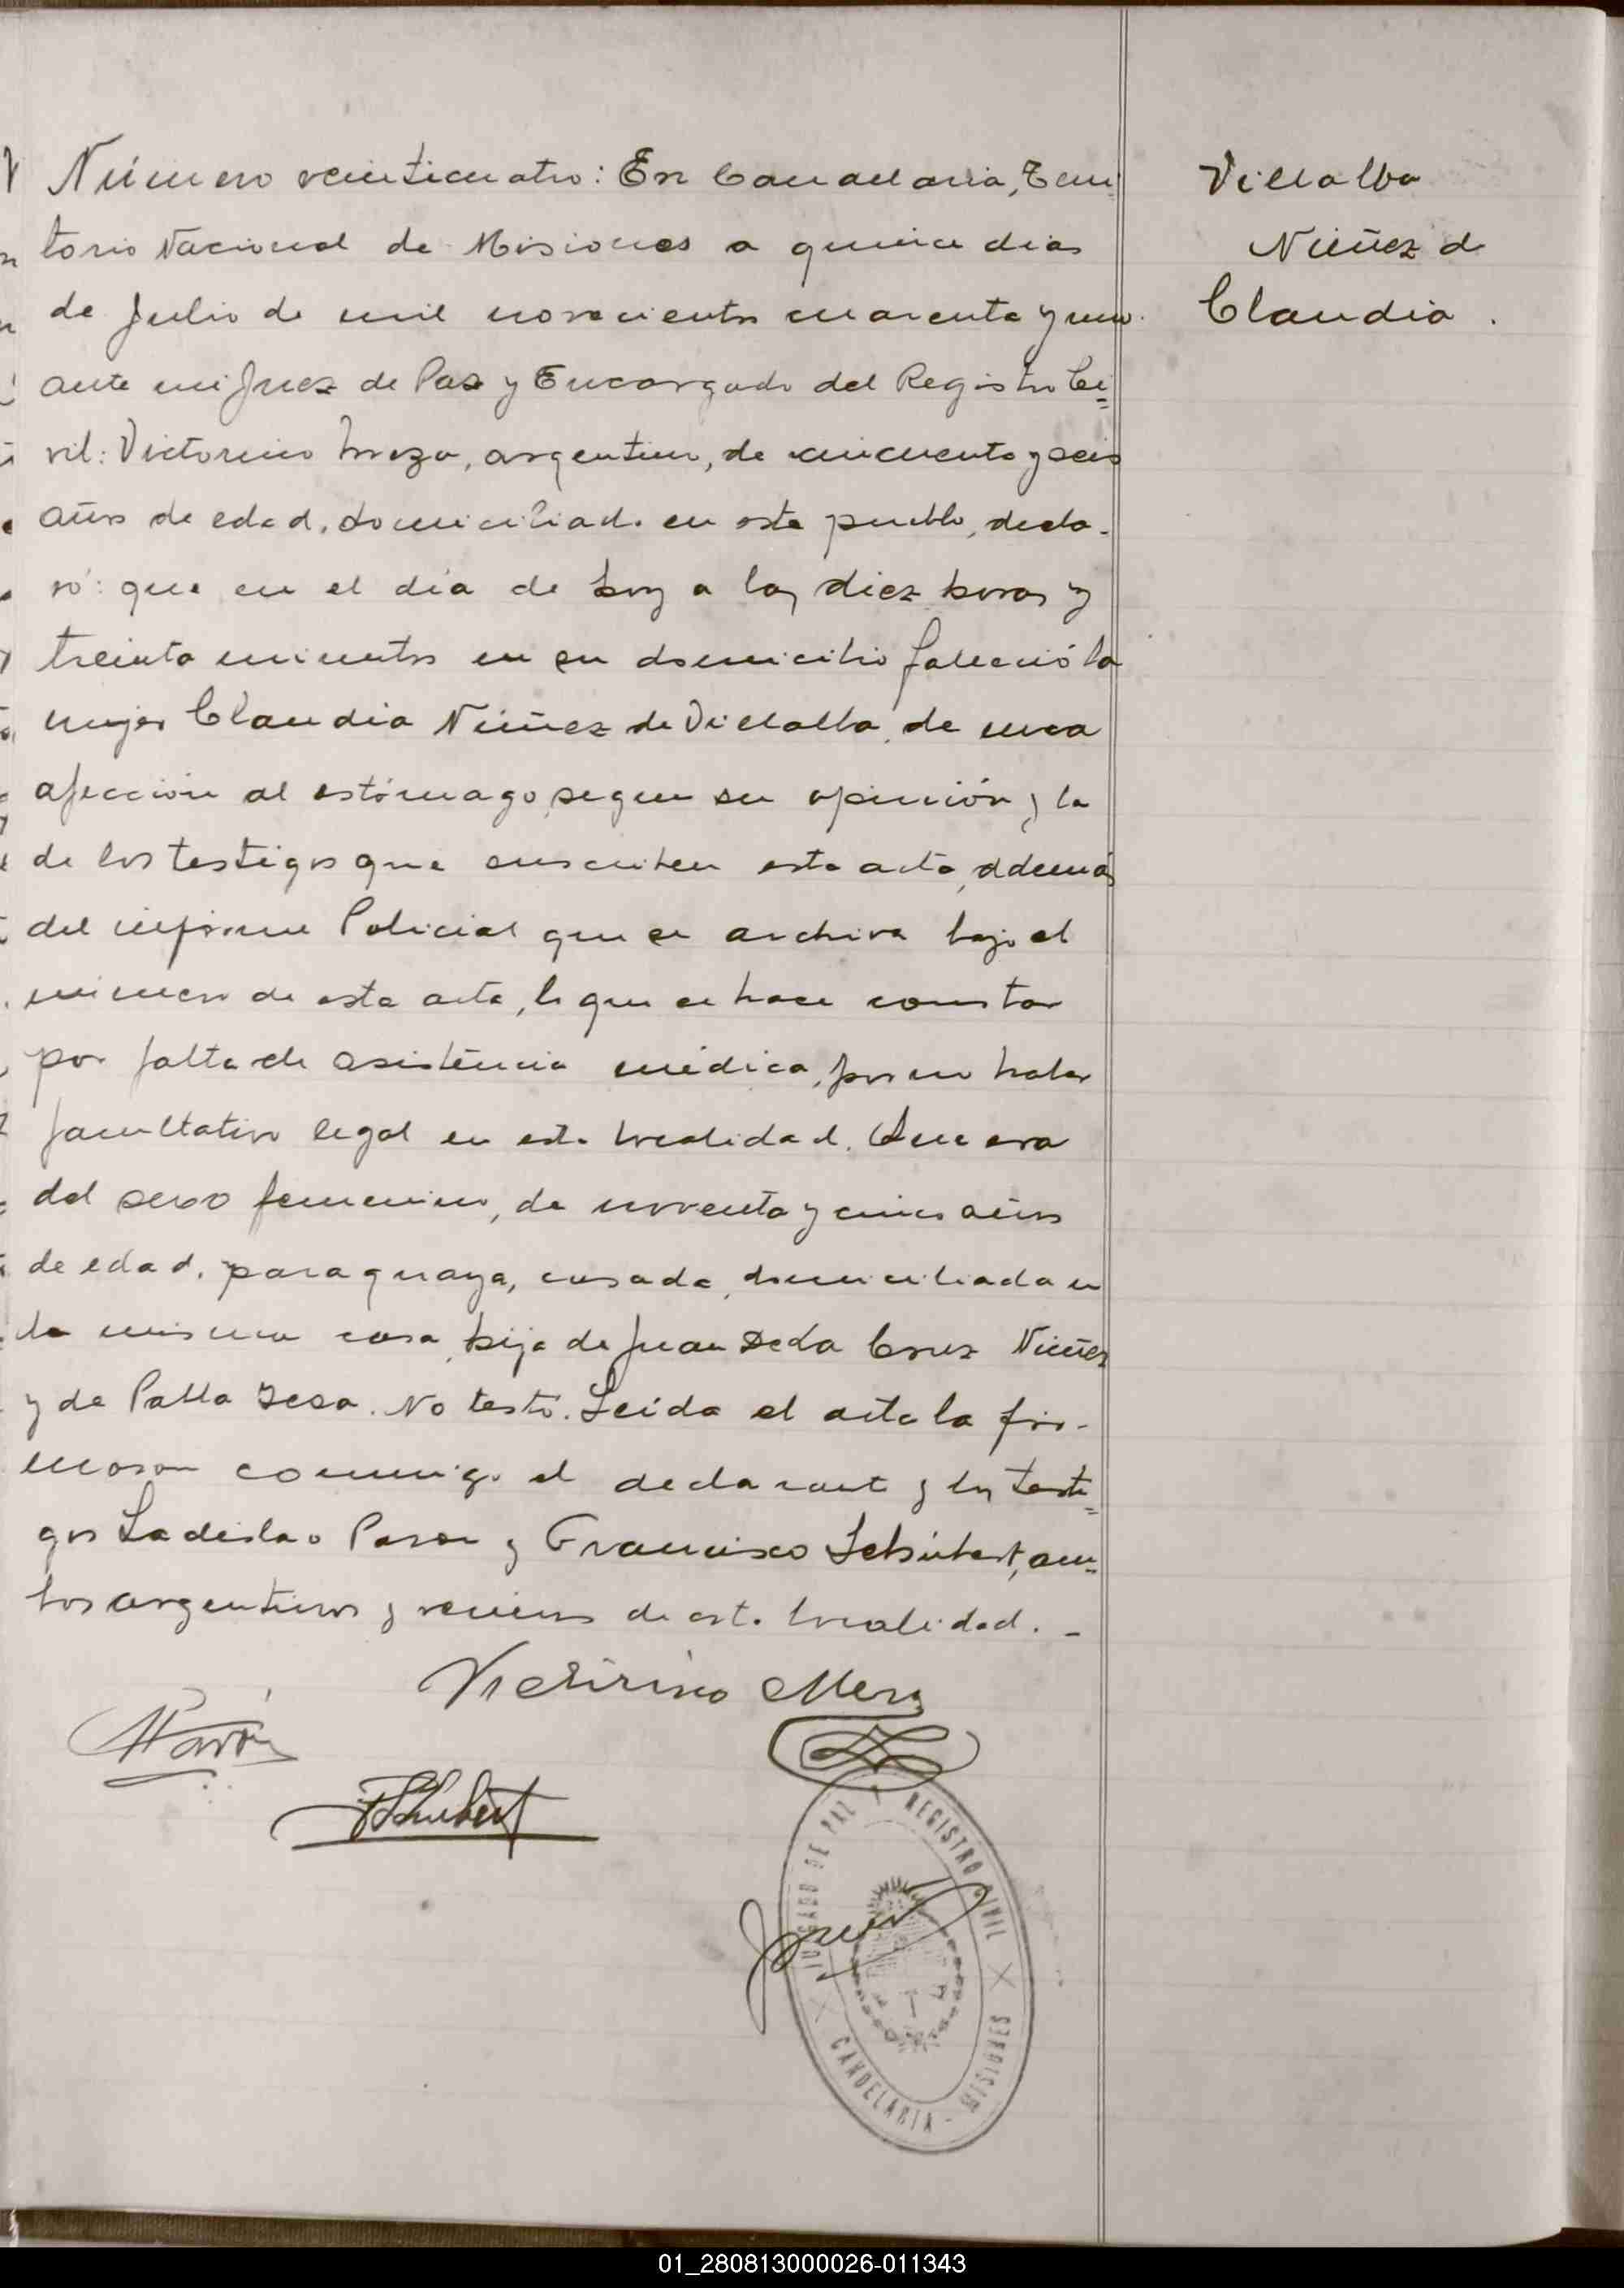 Número veinticuatro: En Candelaria, Terri
torio Nacional de Misiones a quince dias
de Julio de mil novecientos cuarenta y uno.
ante mi Juez de Paz y Encargado del Registro Ci=
vil: Victorino Meza, argentino, de cincuenta y seis
años de edad, domiciliado en este pueblo, decla-
ró: que en el día de hoy a las diez horas y
treinta minutos en su domicilio falleció la
mujer Claudia Núñez de Villalba, de una
afección al estómago, segun su opinión y la
de los testigos que suscriben esta acta, además
del informe Policial que se archiva bajo el
número de esta acta, lo que se hace constar
por falta de asistencia médica, por no haber
facultativo legal en esta localidad. Que era
del sexo femenino, de noventa y cinco años
de edad, paraguaya, casada, domiciliada en
la misma casa, hija de Juan De la Cruz Núñez
y de Pabla. No testó. Leída el acta la fir-
maron conmigo el declarante y los testi=
gos Ladislao y Francisco Schúbert, am=
bos argentinos y vecinos de esta localidad. -
Victorino Meza
FSchubert
JUZGADO DE PAZ X REGISTRO CIVIL X
CANDELARIA - MISIONES
Villalba
Núñez de
Claudia.
01_280813000026-011343